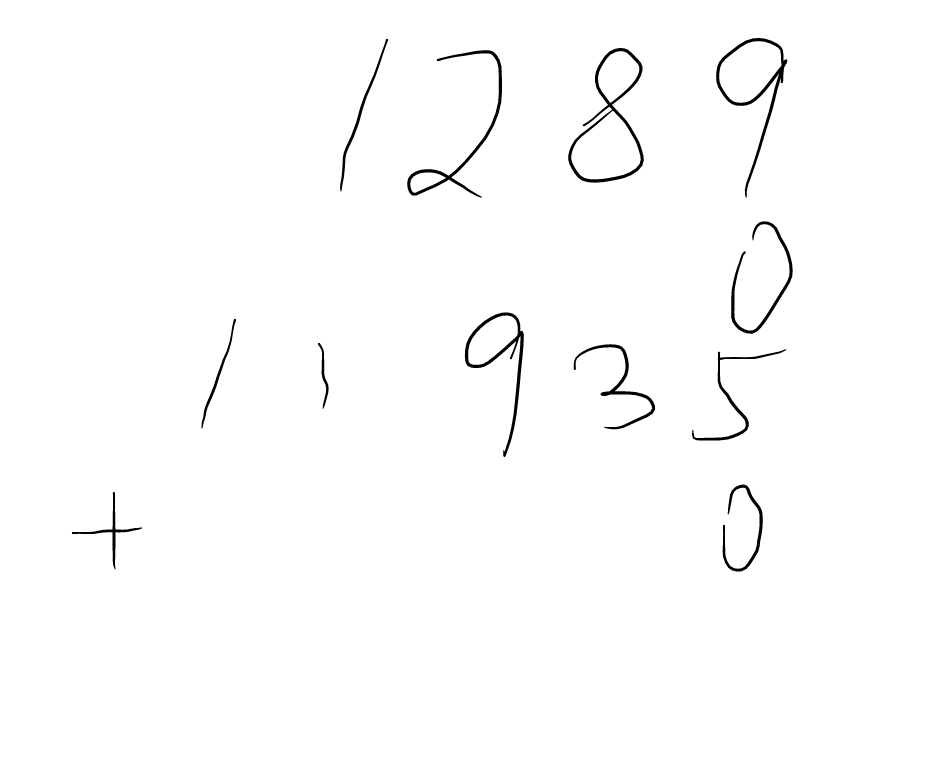 1289
0
11935
+ 0